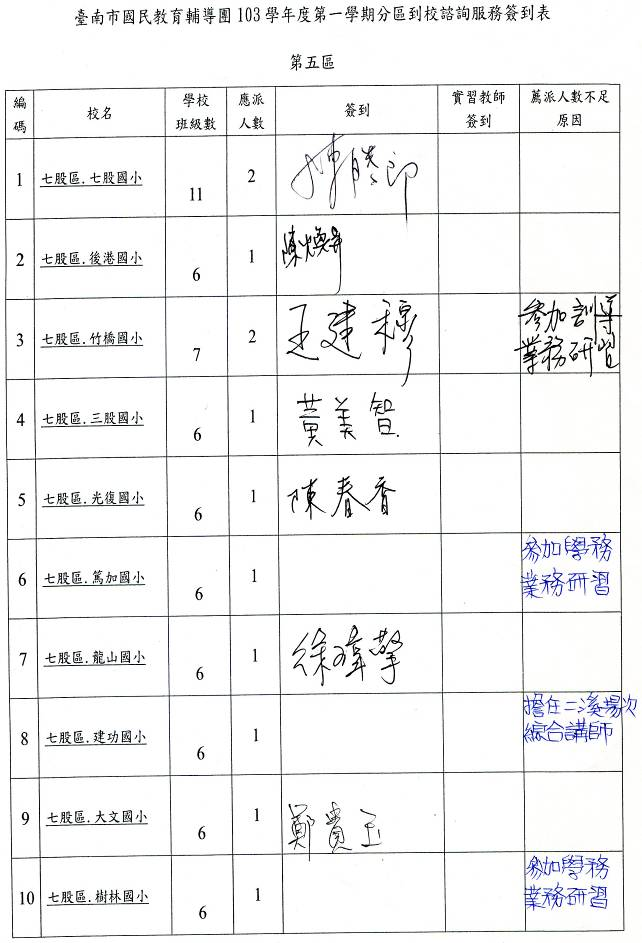 臺南市國民教育輔導團 103 學年度第一學期分區到校諮詢服務簽到表
第五區
編碼 校名 學校班級數 應派人數 簽到 實習教師簽到 薦派人數不足原因
1 七股區.七股國小 11 2
2 七股區.後港國小 6 1 陳煥昇
3 七股區.竹橋國小 7 2 王建穆 參加訓導業務研習
4 七股區.三股國小 6 1 黃美智
5 七股區.光復國小 6 1 陳春香
6 七股區.篤加國小 6 1 參加學務業務研習
7 七股區.龍山國小 6 1 徐瑋擎
8 七股區.建功國小 6 1 擔任二溪場次綜合講師
9 七股區.大文國小 6 1 鄭貴玉
10 七股區.樹林國小 6 1 參加學務業務研習